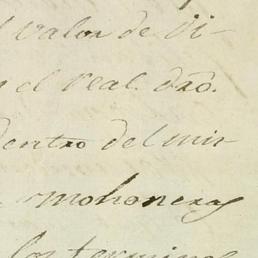 valor de vi-
el real. dro.
dentro del mis-
mohoneras
los terminos